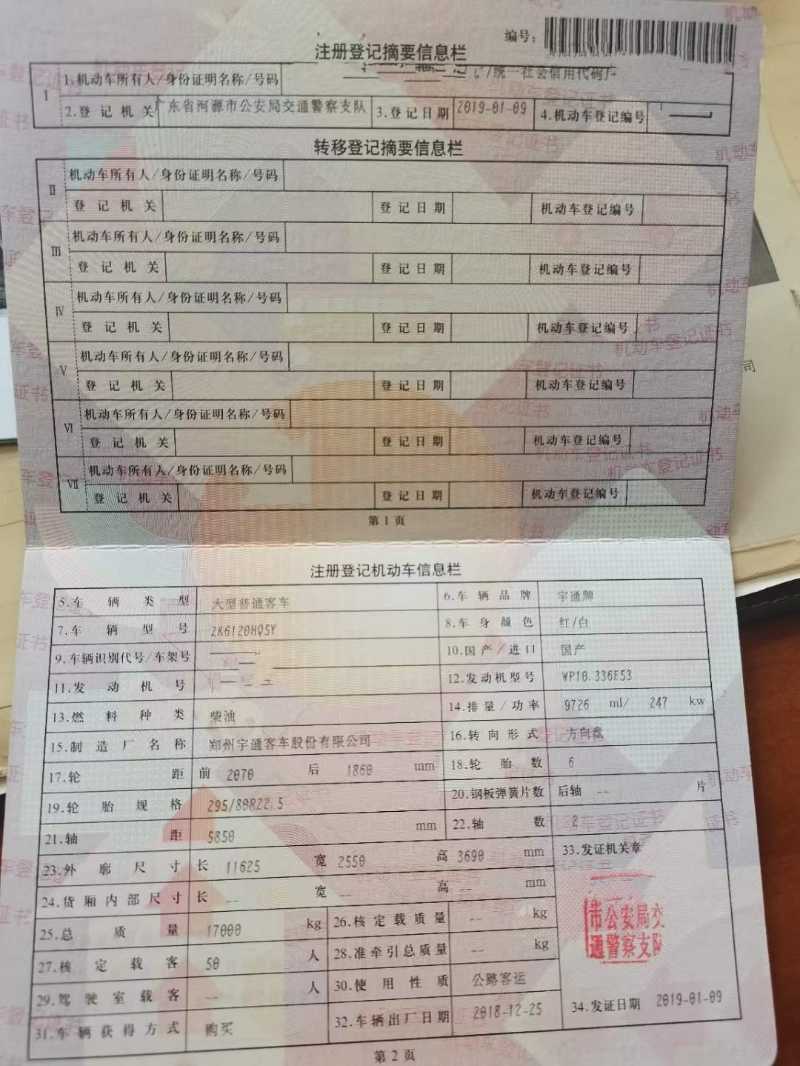 编号:
注册登记摘要信息栏
I 1.机动车所有人/身份证明名称/号码 /统一社会信用代码/
2.登记机关 东省河源市公安局交通警察支队 3.登记日期 2019-01-09 4.机动车登记编号
转移登记摘要信息栏
II 机动车所有人/身份证明名称/号码
登记机关 登记日期 机动车登记编号
III 机动车所有人/身份证明名称/号码
登记机关 登记日期 机动车登记编号
IV 机动车所有人/身份证明名称/号码
登记机关 登记日期 机动车登记编号
V 机动车所有人/身份证明名称/号码
登记机关 登记日期 机动车登记编号
VI 机动车所有人/身份证明名称/号码
登记机关 登记日期 机动车登记编号
VII 机动车所有人/身份证明名称/号码
登记机关 登记日期 机动车登记编号
第1页
司
注册登记机动车信息栏
5.车辆类型 大型普通客车 6.车辆品牌 宇通牌
7.车辆型号 ZK6120HQ5Y 8.车身颜色 红/白
9.车辆识别代号/车架号 10.国产/进口 国产
11.发动机号 12.发动机型号 WP10.336E53
13.燃料种类 柴油 14.排量/功率 9726 ml/ 247 kw
15.制造厂名称 郑州宇通客车股份有限公司 16.转向形式 方向盘
17.轮距 前 2070 后 1860 mm 18.轮胎数 6
19.轮胎规格 295/80R22.5 20.钢板弹簧片数 后轴 -- 片
21.轴距 5850 mm 22.轴数 2
23.外廓尺寸 长 11625 宽 2550 高 3690 mm 33.发证机关章
24.货厢内部尺寸 长 -- 宽 -- 高 -- mm
25.总质量 17000 kg 26.核定载质量 -- kg
市公安局交
通警察支队
27.核定载客 50 人 28.准牵引总质量 -- kg
29.驾驶室载客 -- 人 30.使用性质 公路客运
31.车辆获得方式 购买 32.车辆出厂日期 2018-12-25 34.发证日期 2019-01-09
第2页